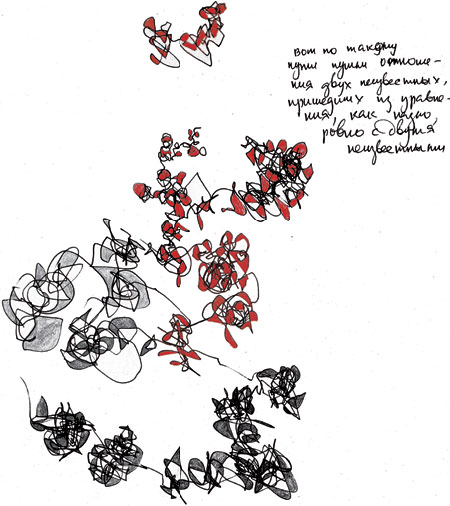 вот по такому
пути пошли отноше-
ния двух неизвестных,
пришедших из уравне-
ния, как
ровно с двумя
неизвестными